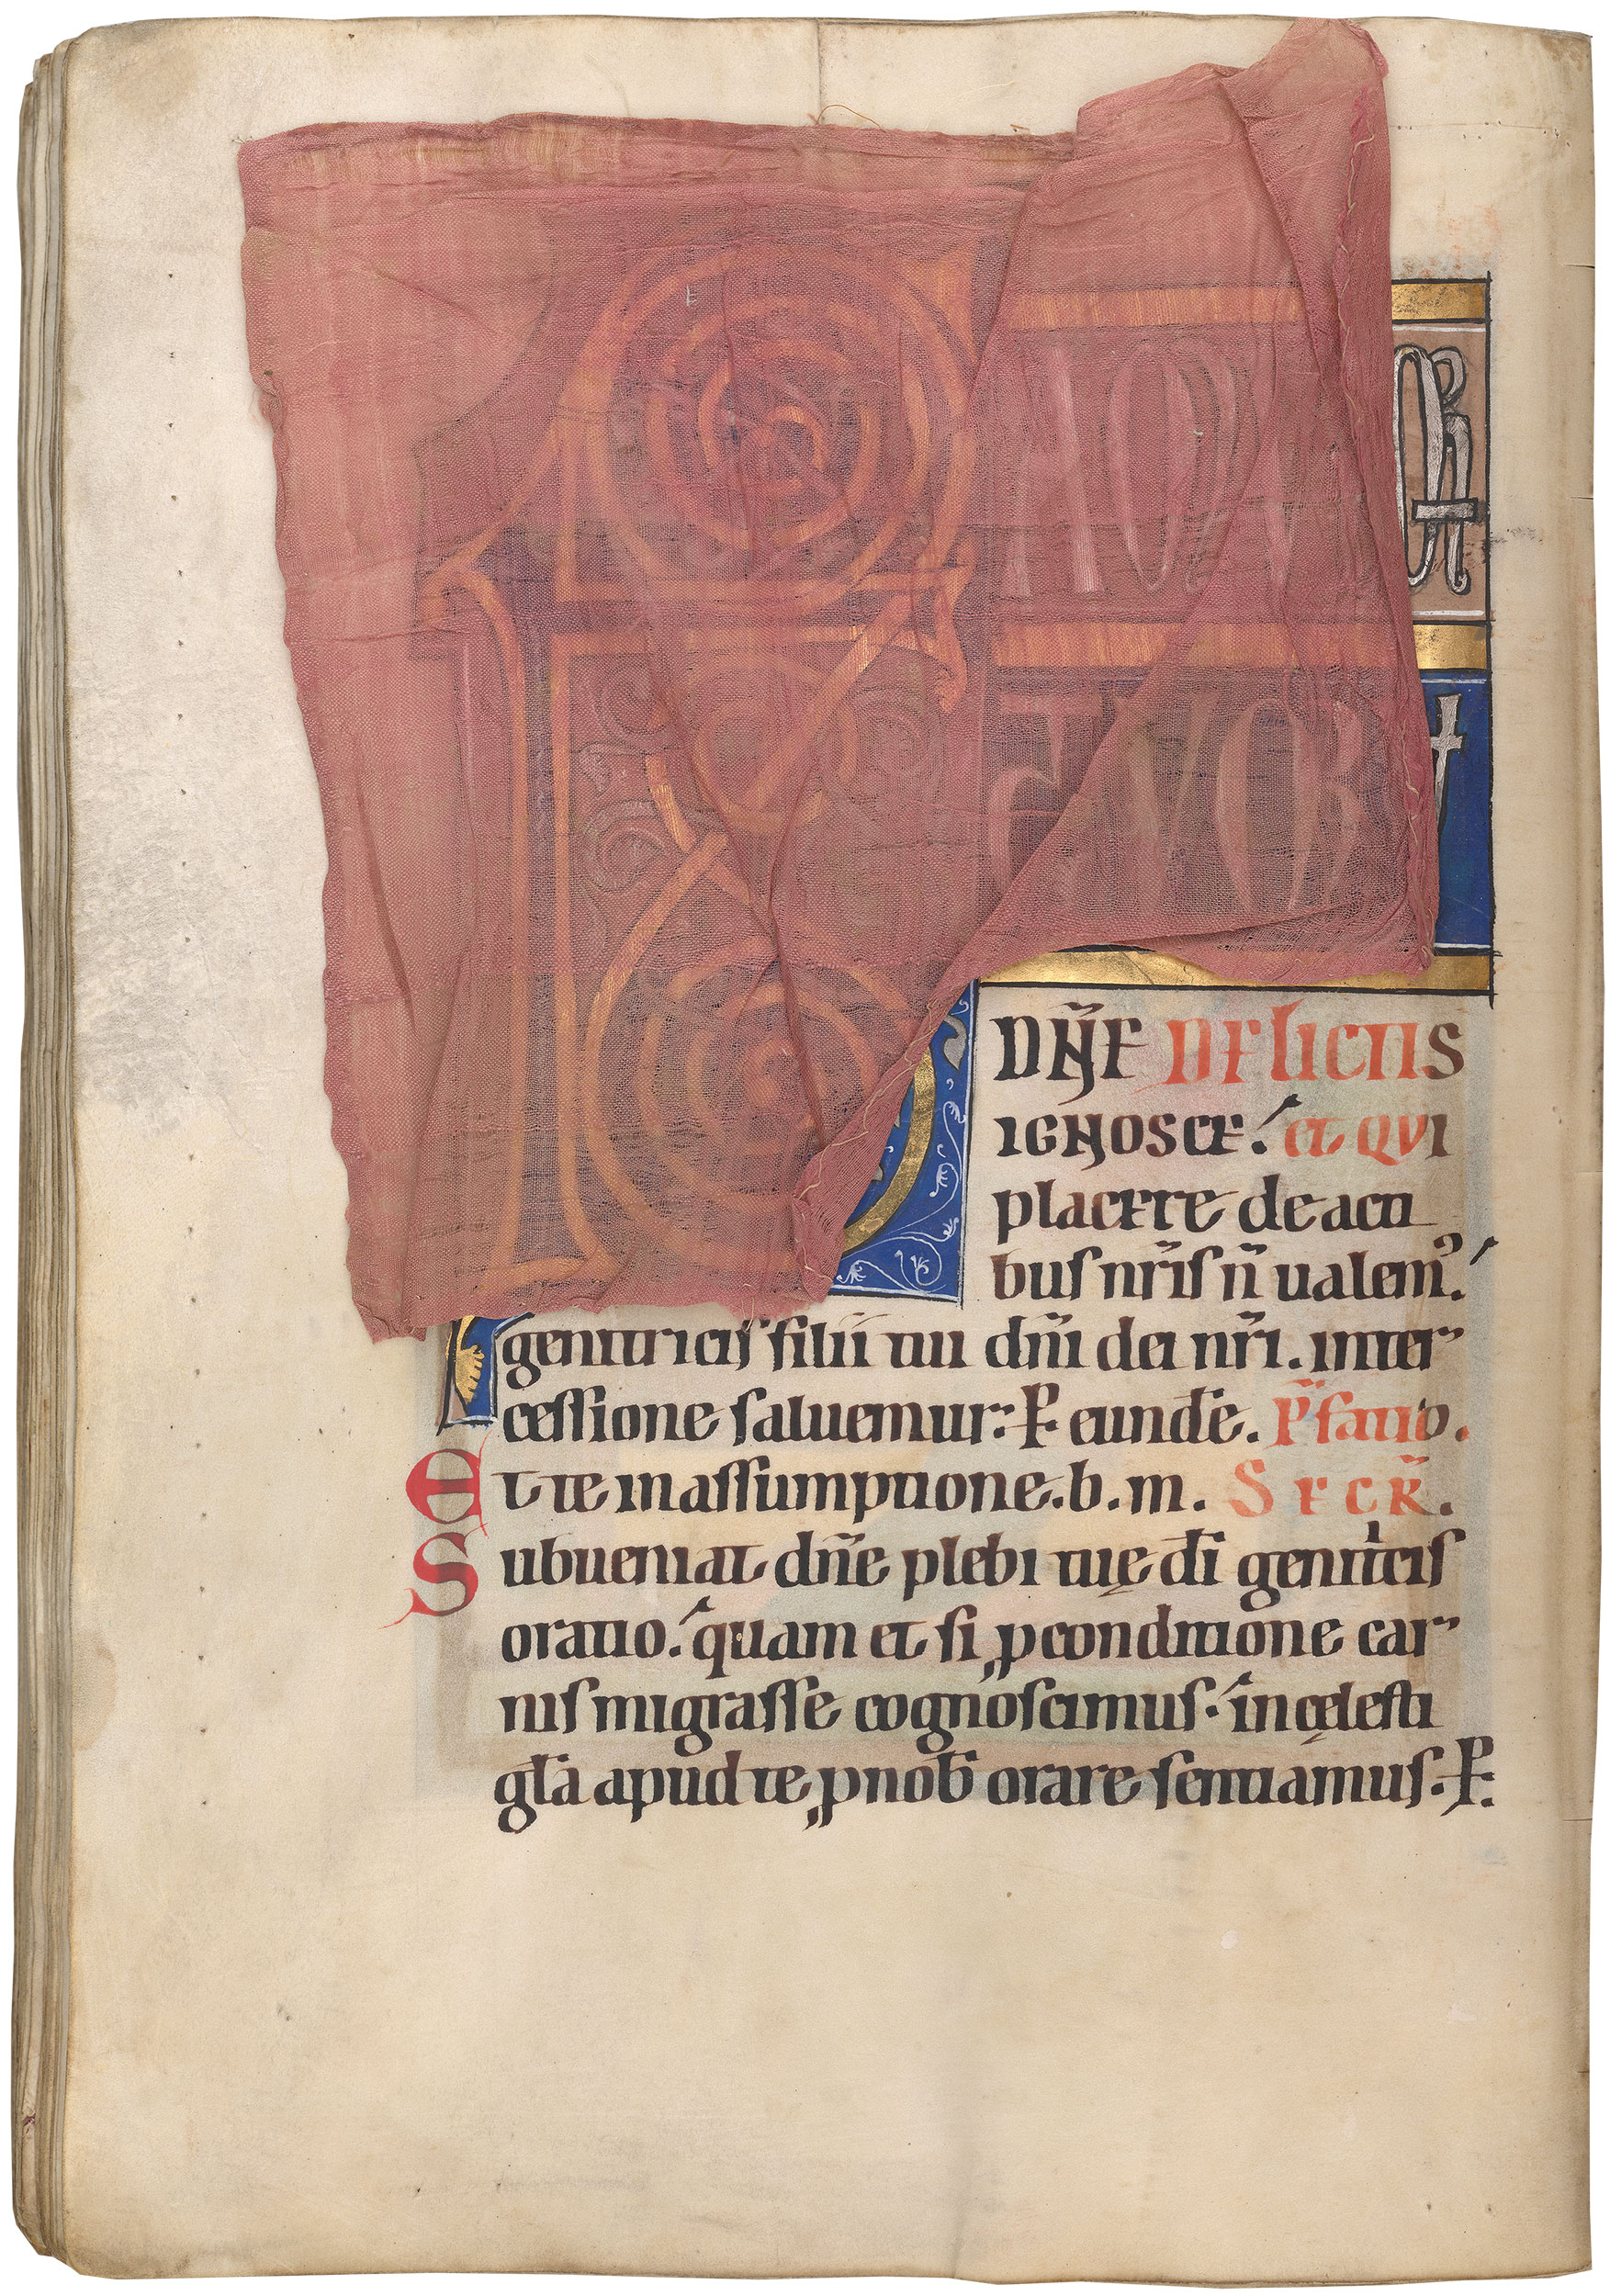 AMVLOR
TVOR
DÑE DELICTIS
IGNOSCE. ET QVI
placere de acti
bus nr̃is ñ ualem̾.
genitricis filii tui dñi dei nr̃i. inter
cessione saluemur: P eundẽ. P̃fatio.
Et te in assumptione. b. m. SECR̃.
Subueniat dñe plebi tuę di genitͥcis
oratio. quam et si ꝓ conditione car
nis migrasse cognoscimus. in cęlesti
gła apud te ꝓ nob orare sentiamus. P.